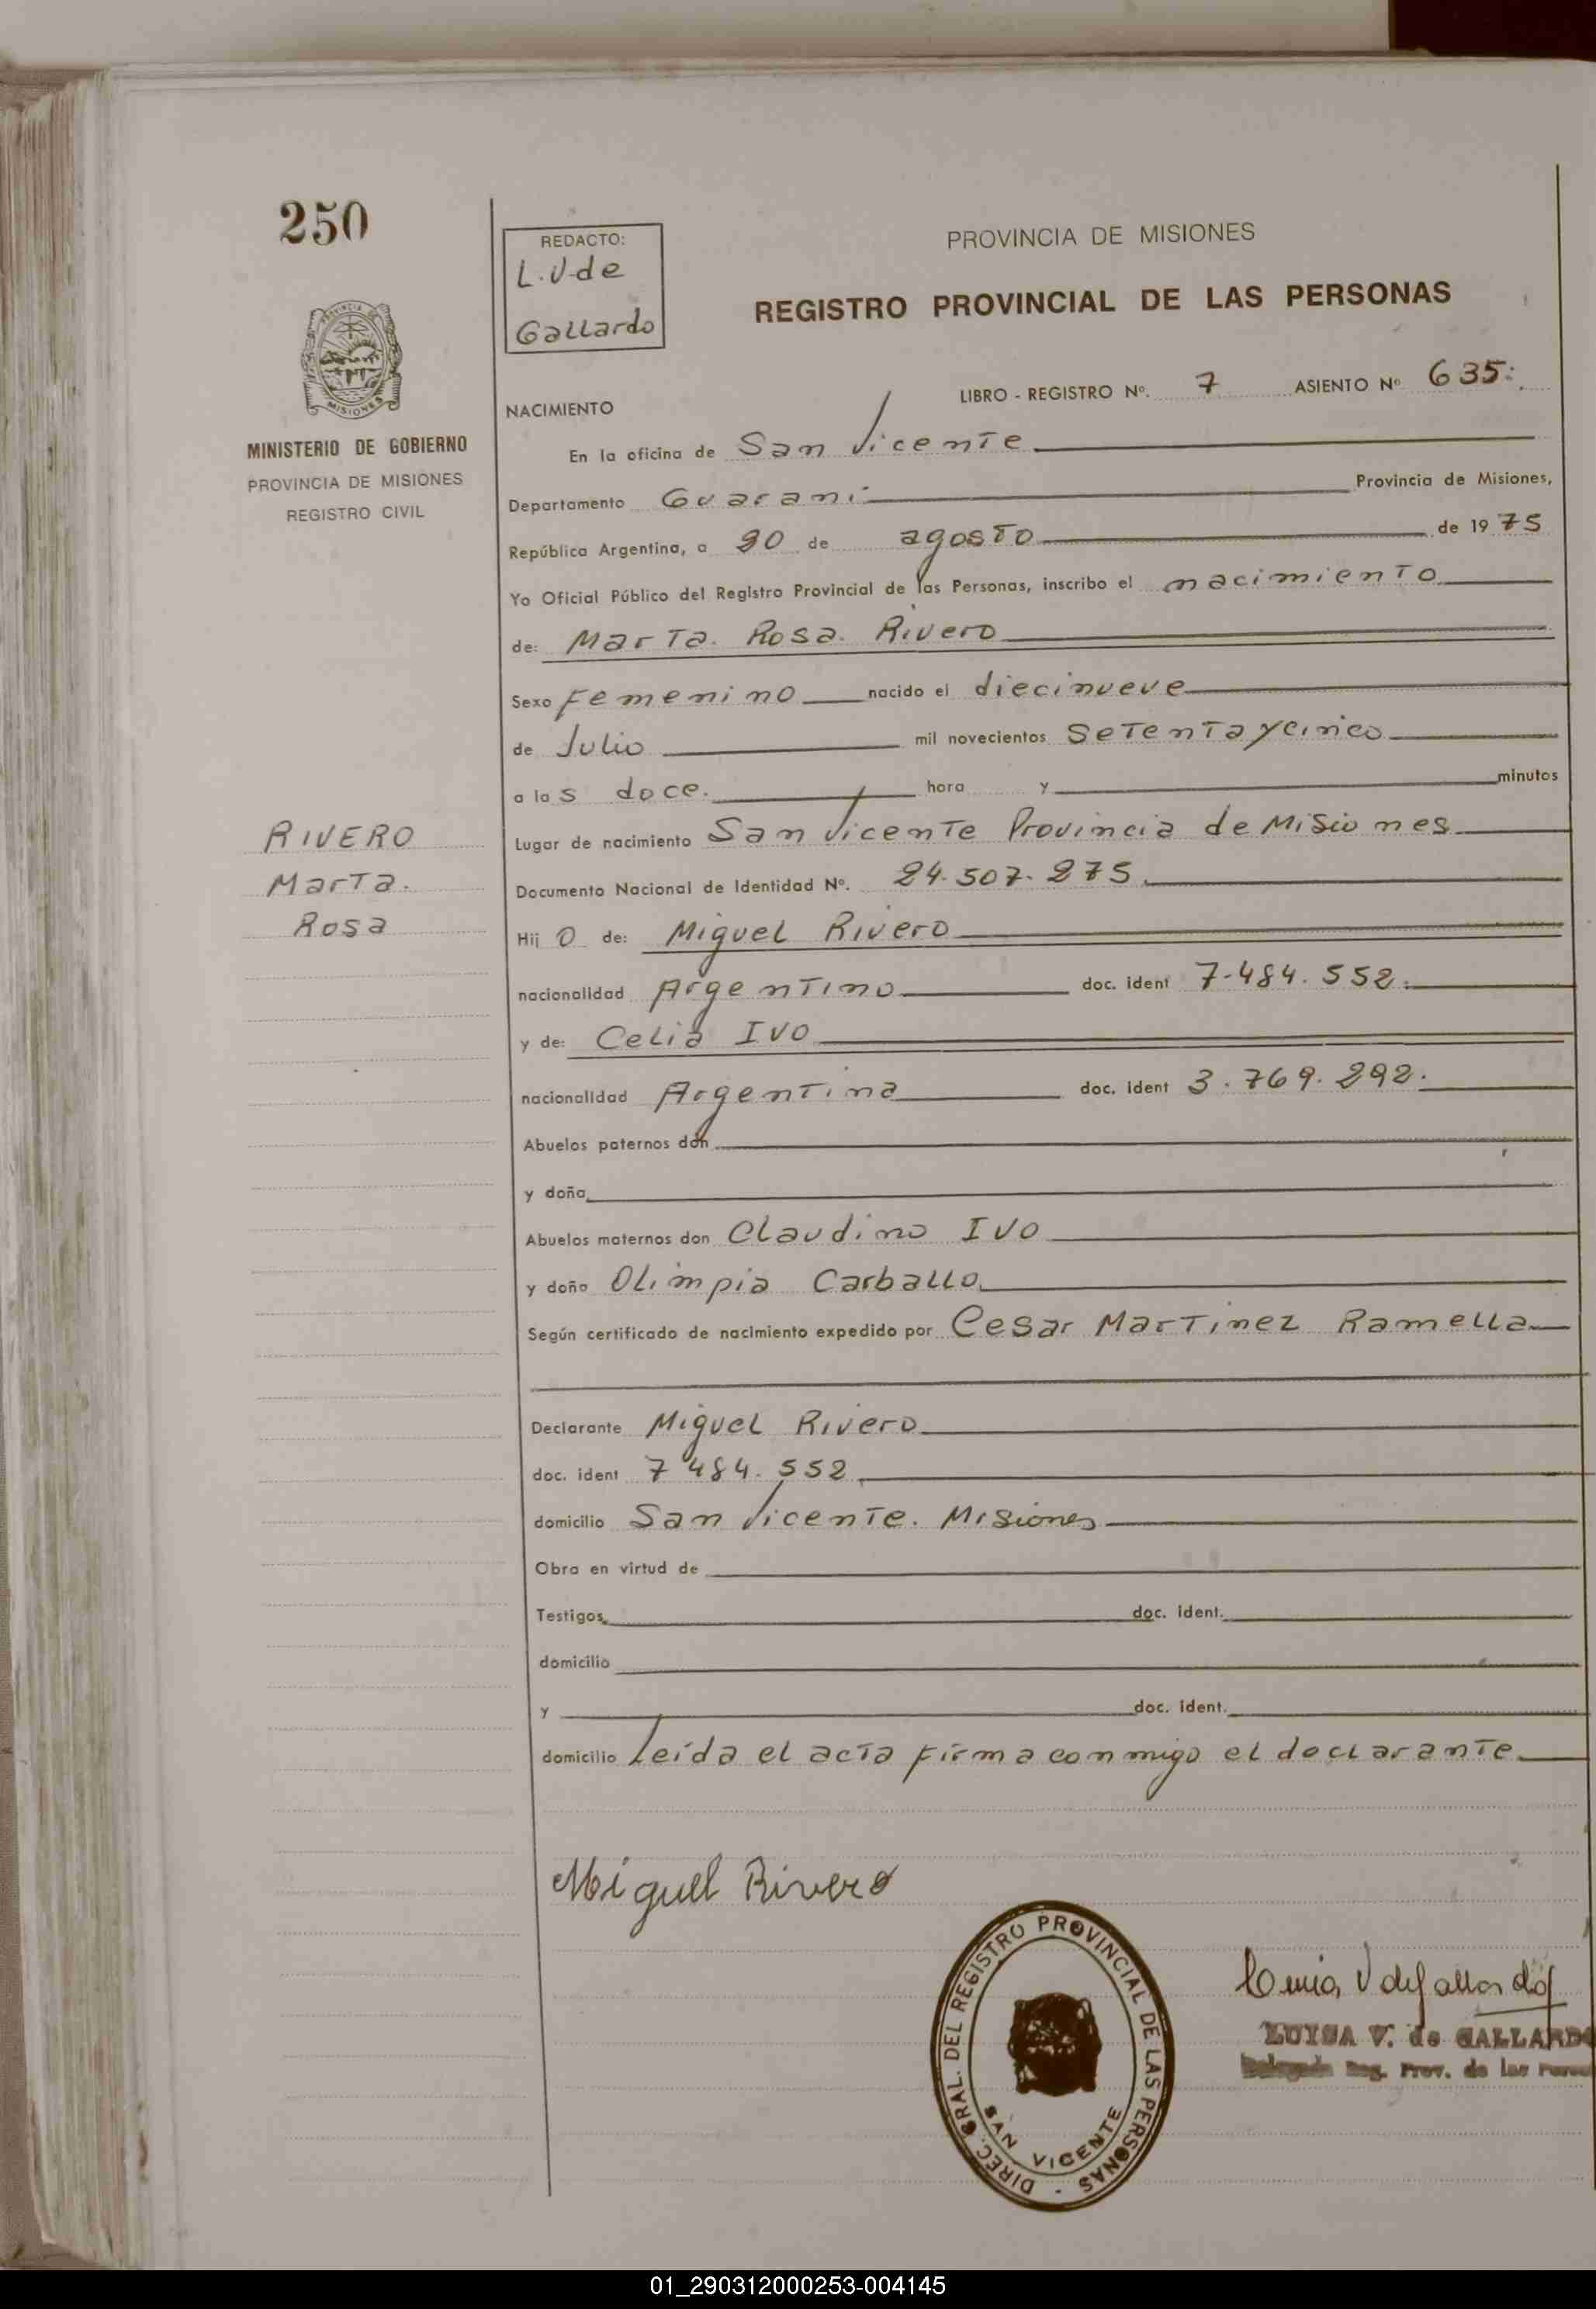 250
REDACTO:
L.V de
Gallardo
PROVINCIA DE MISIONES
REGISTRO PROVINCIAL DE LAS PERSONAS
PROVINCIA DE
MISIONES
MINISTERIO DE GOBIERNO
PROVINCIA DE MISIONES
REGISTRO CIVIL
LIBRO - REGISTRO Nº. 7 ASIENTO Nº 635
NACIMIENTO
En la oficina de San Vicente
Departamento Guarani Provincia de Misiones,
República Argentina, a de agosto de 1975
Yo Oficial Público del Registro Provincial de las Personas, inscribo el nacimiento
de: Marta. Rosa. Rivero
Sexo Femenino nacido el diecinueve
de Julio mil novecientos setenta y cinco
a las doce. hora y minutos
Lugar de nacimiento San Vicente Provincia de Misiones
RIVERO
Marta.
Rosa
Documento Nacional de Identidad Nº. 24.507.275
Hij O de: Miguel Rivero
nacionalidad Argentino doc. ident 7.484.552.
y de: Celia Ivo
nacionalidad Argentina doc. ident 3.769.292.
Abuelos paternos don
y doña
Abuelos maternos don Claudino Ivo
y doña Olimpia Carballo
Según certificado de nacimiento expedido por Cesar Martinez Ramella
Declarante Miguel Rivero
doc. ident 7 484.552
domicilio San Vicente. Misiones
Obra en virtud de
Testigos doc. ident.
domicilio
y doc. ident.
domicilio Leída el acta firma conmigo el declarante
Miguel Rivero
DIREC. GRAL. DEL REGISTRO PROVINCIAL DE LAS PERSONAS -
SAN VICENTE
Luisa V de Gallardo
LUISA V. de GALLARDO
Delegada Reg. Prov. de las
01_290312000253-004145